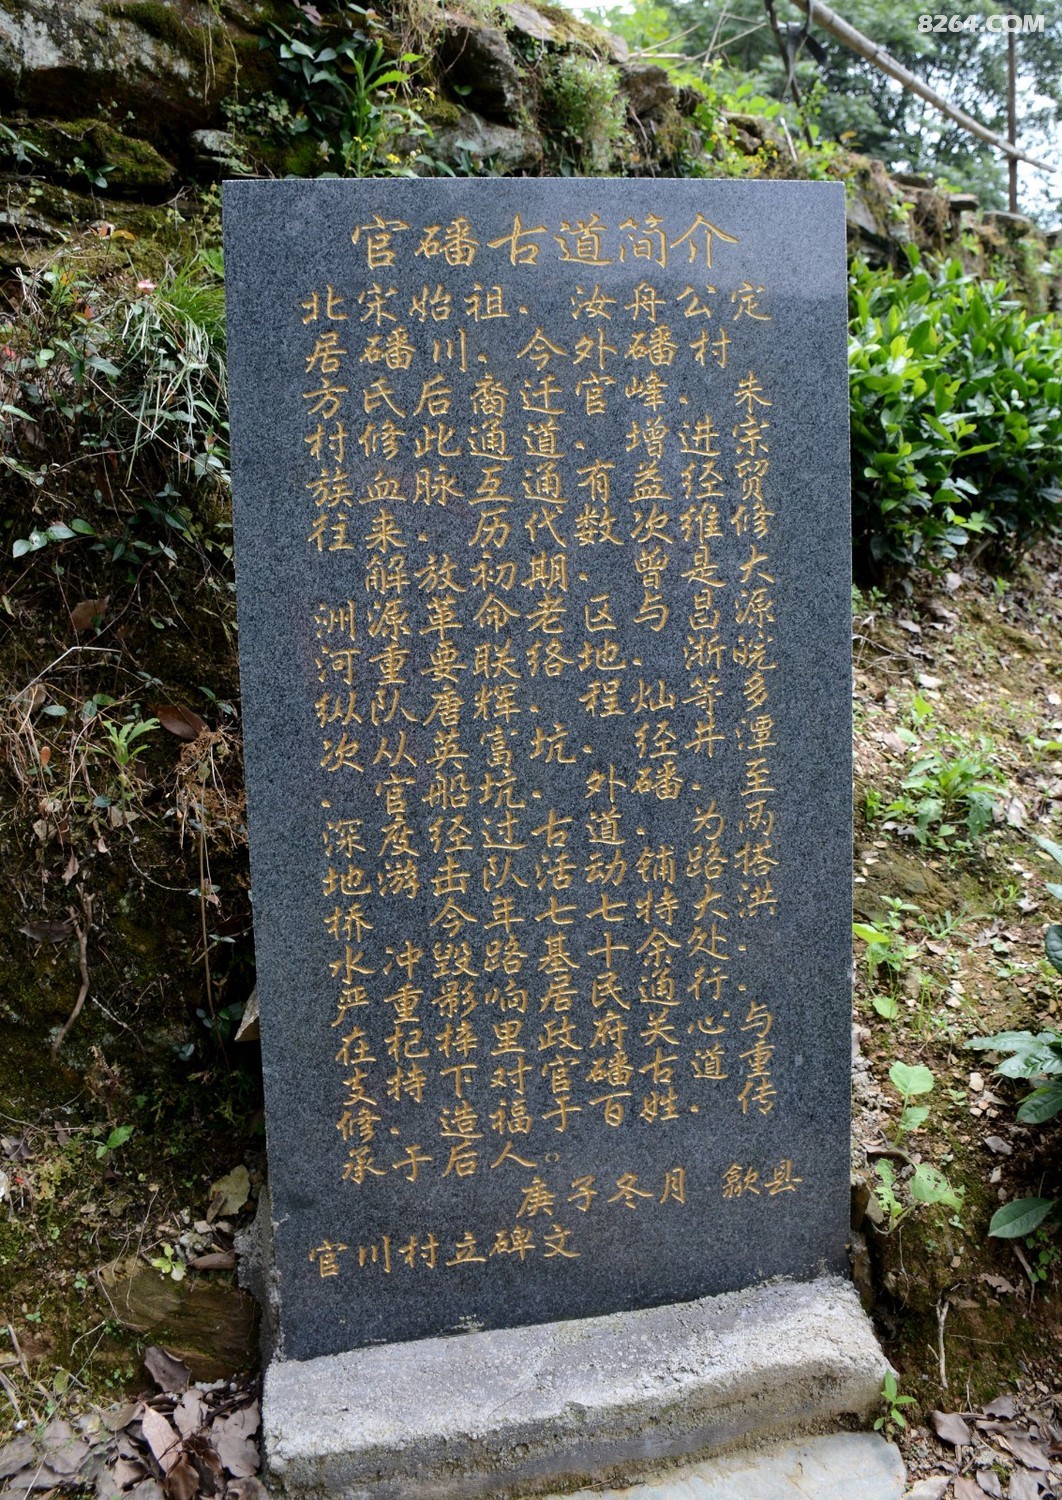 官磻古道简介
北宋始祖.汝舟公定
居磻川.今外磻村.
方氏后裔迁官峰.朱
村修此通道.增进宗
族血脉互通有益经贸
往来.历代数次维修
解放初期.曾是大
洲源革命老区与昌源
河重要联络地.浙皖
纵队唐辉.程灿等多
次从英富坑.经井潭
.官船坑.外磻.至
深度经过古道铺为两
地游击队活动特路搭
桥.今年七七余大洪
水冲毁路基十通处.
严重影响居民通行.
在杞梓里政府关心与
支持下对官磻古道重
修.造福于百姓.传
承于后人。
庚子冬月 歙县
官川村立碑文
8264.COM